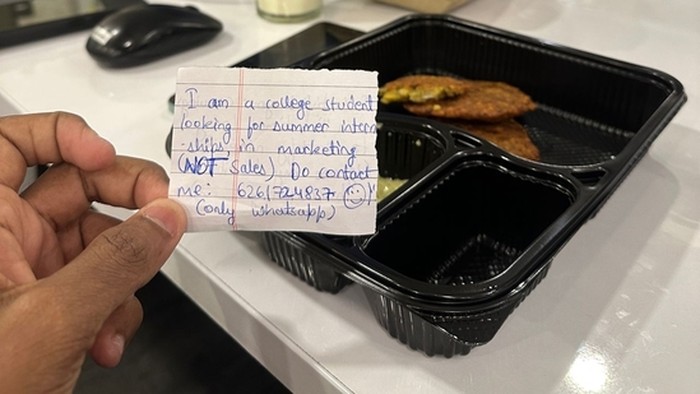 I am a college student
looking for summer intern
-ships in marketing
(NOT sales) Do contact
me: 6261724837 ☺
(only whatsapp)